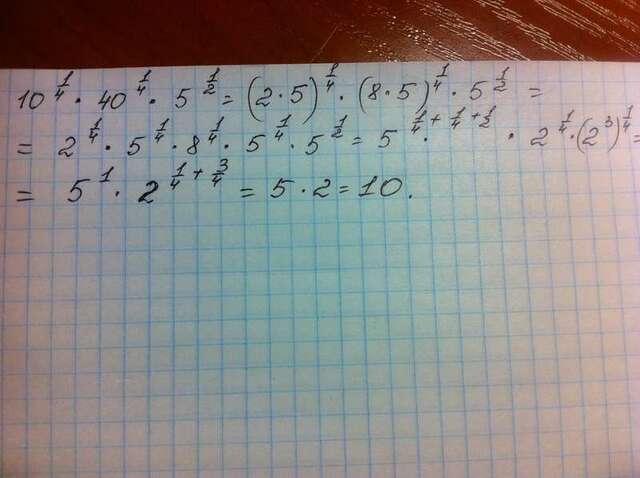 10^{1/4} · 40^{1/4} · 5^{1/2} = (2 · 5)^{1/4} · (8 · 5)^{1/4} · 5^{1/2} =
= 2^{1/4} · 5^{1/4} · 8^{1/4} · 5^{1/4} · 5^{1/2} = 5^{1/4 + 1/4 + 1/2} · 2^{1/4} · (2^3)^{1/4} =
= 5^1 · 2^{1/4 + 3/4} = 5 · 2 = 10.